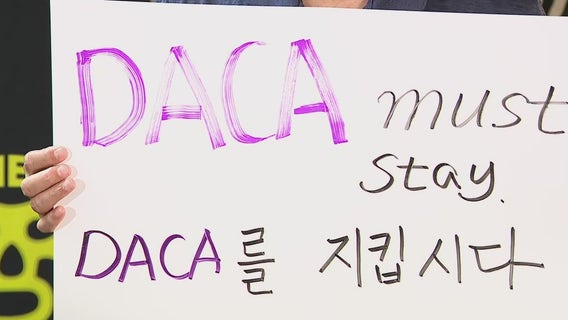 DACA must
stay.
DACA를 지킵시다